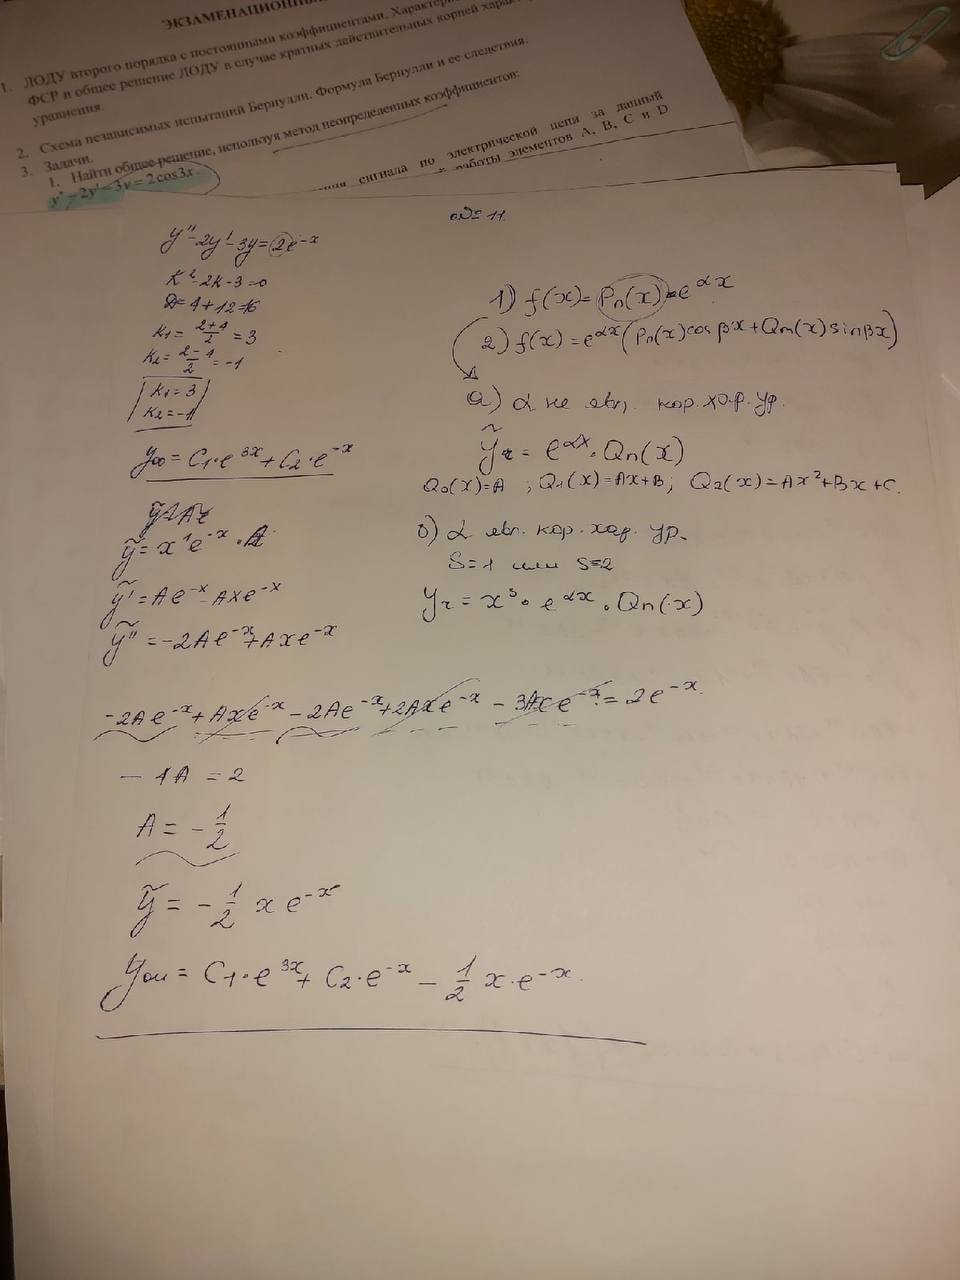 ЭКЗАМЕНАЦИОНН
1. ЛОДУ второго порядка с постоянными коэффициентами. Характери
ФСР и общее решение ЛОДУ в случае кратных действительных корней харак
уравнения.
2. Схема независимых испытаний Бернулли. Формула Бернулли и ее следствия.
3. Задачи.
1. Найти общее решение, используя метод неопределенных коэффициентов:
y'' - 2y' - 3y = 2cos3x.
сигнала по электрической цепи за данный
работы элементов A, B, C и D
№ 11
y''-2y'-3y=2e^-x
K²-2K-3=0
D=4+12=16
K1=(2+4)/2=3
K2=(2-4)/2=-1
K1=3
K2=-1
yоо=C1·e^3x+C2·e^-x
ỹ=x¹e^-x·A
ỹ'=Ae^-x-Axe^-x
ỹ''=-2Ae^-x+Axe^-x
1) f(x)=Pn(x)·e^αx
2) f(x)=e^αx(Pn(x)cosβx+Qm(x)sinβx)
а) α не явл. кор. хар. ур.
ỹr=e^αx·Qn(x)
Q0(x)=A; Q1(x)=Ax+B; Q2(x)=Ax²+Bx+C.
б) α явл. кор. хар. ур.
S=1 или S=2
yr=x^s·e^αx·Qn(x)
-2Ae^-x+Axe^-x-2Ae^-x+2Axe^-x-3Axe^-x=2e^-x
-4A=2
A=-1/2
ỹ=-1/2 xe^-x
yон=C1·e^3x+C2·e^-x-1/2 x·e^-x.